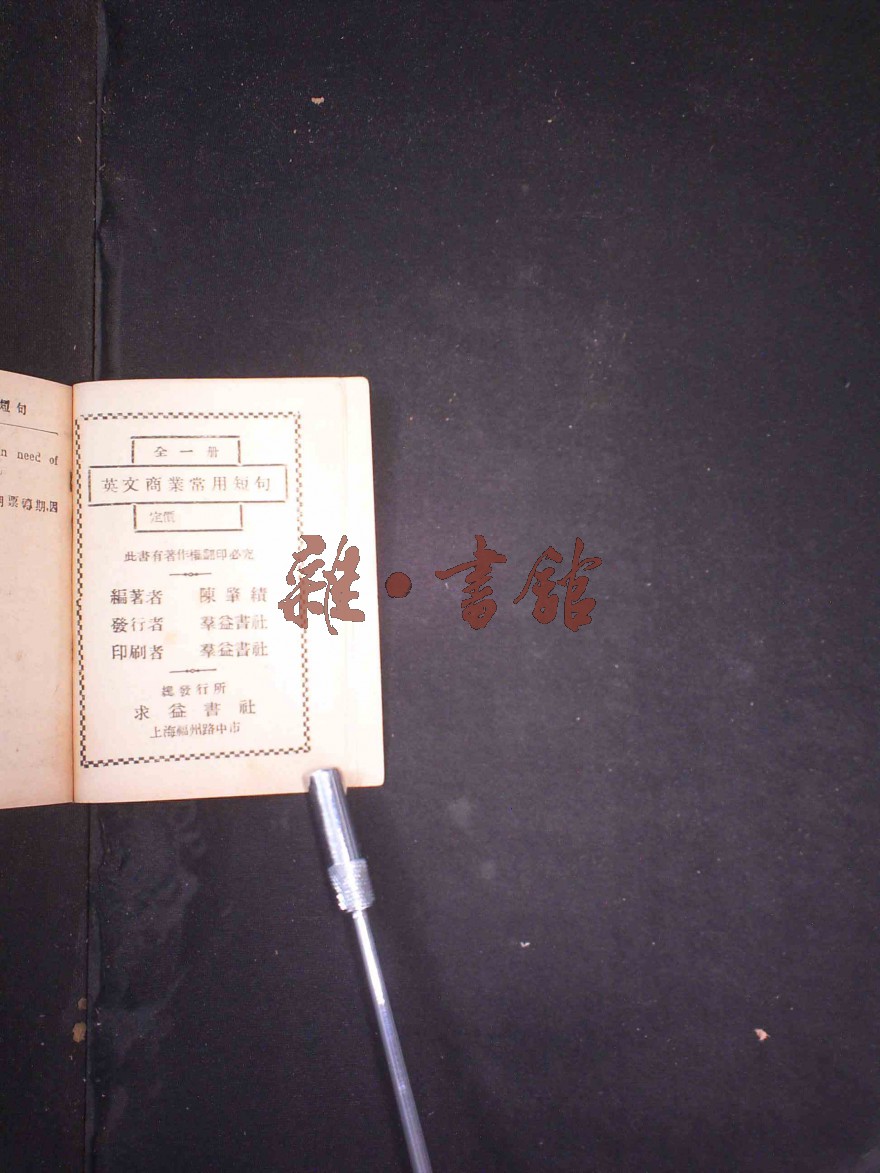 短句
n need of
期票將期,因
全一册
英文商業常用短句
定價
此書有著作權翻印必究
編著者 陳肇績
發行者 羣益書社
印刷者 羣益書社
總發行所
求益書社
上海福州路中市
雜·書館